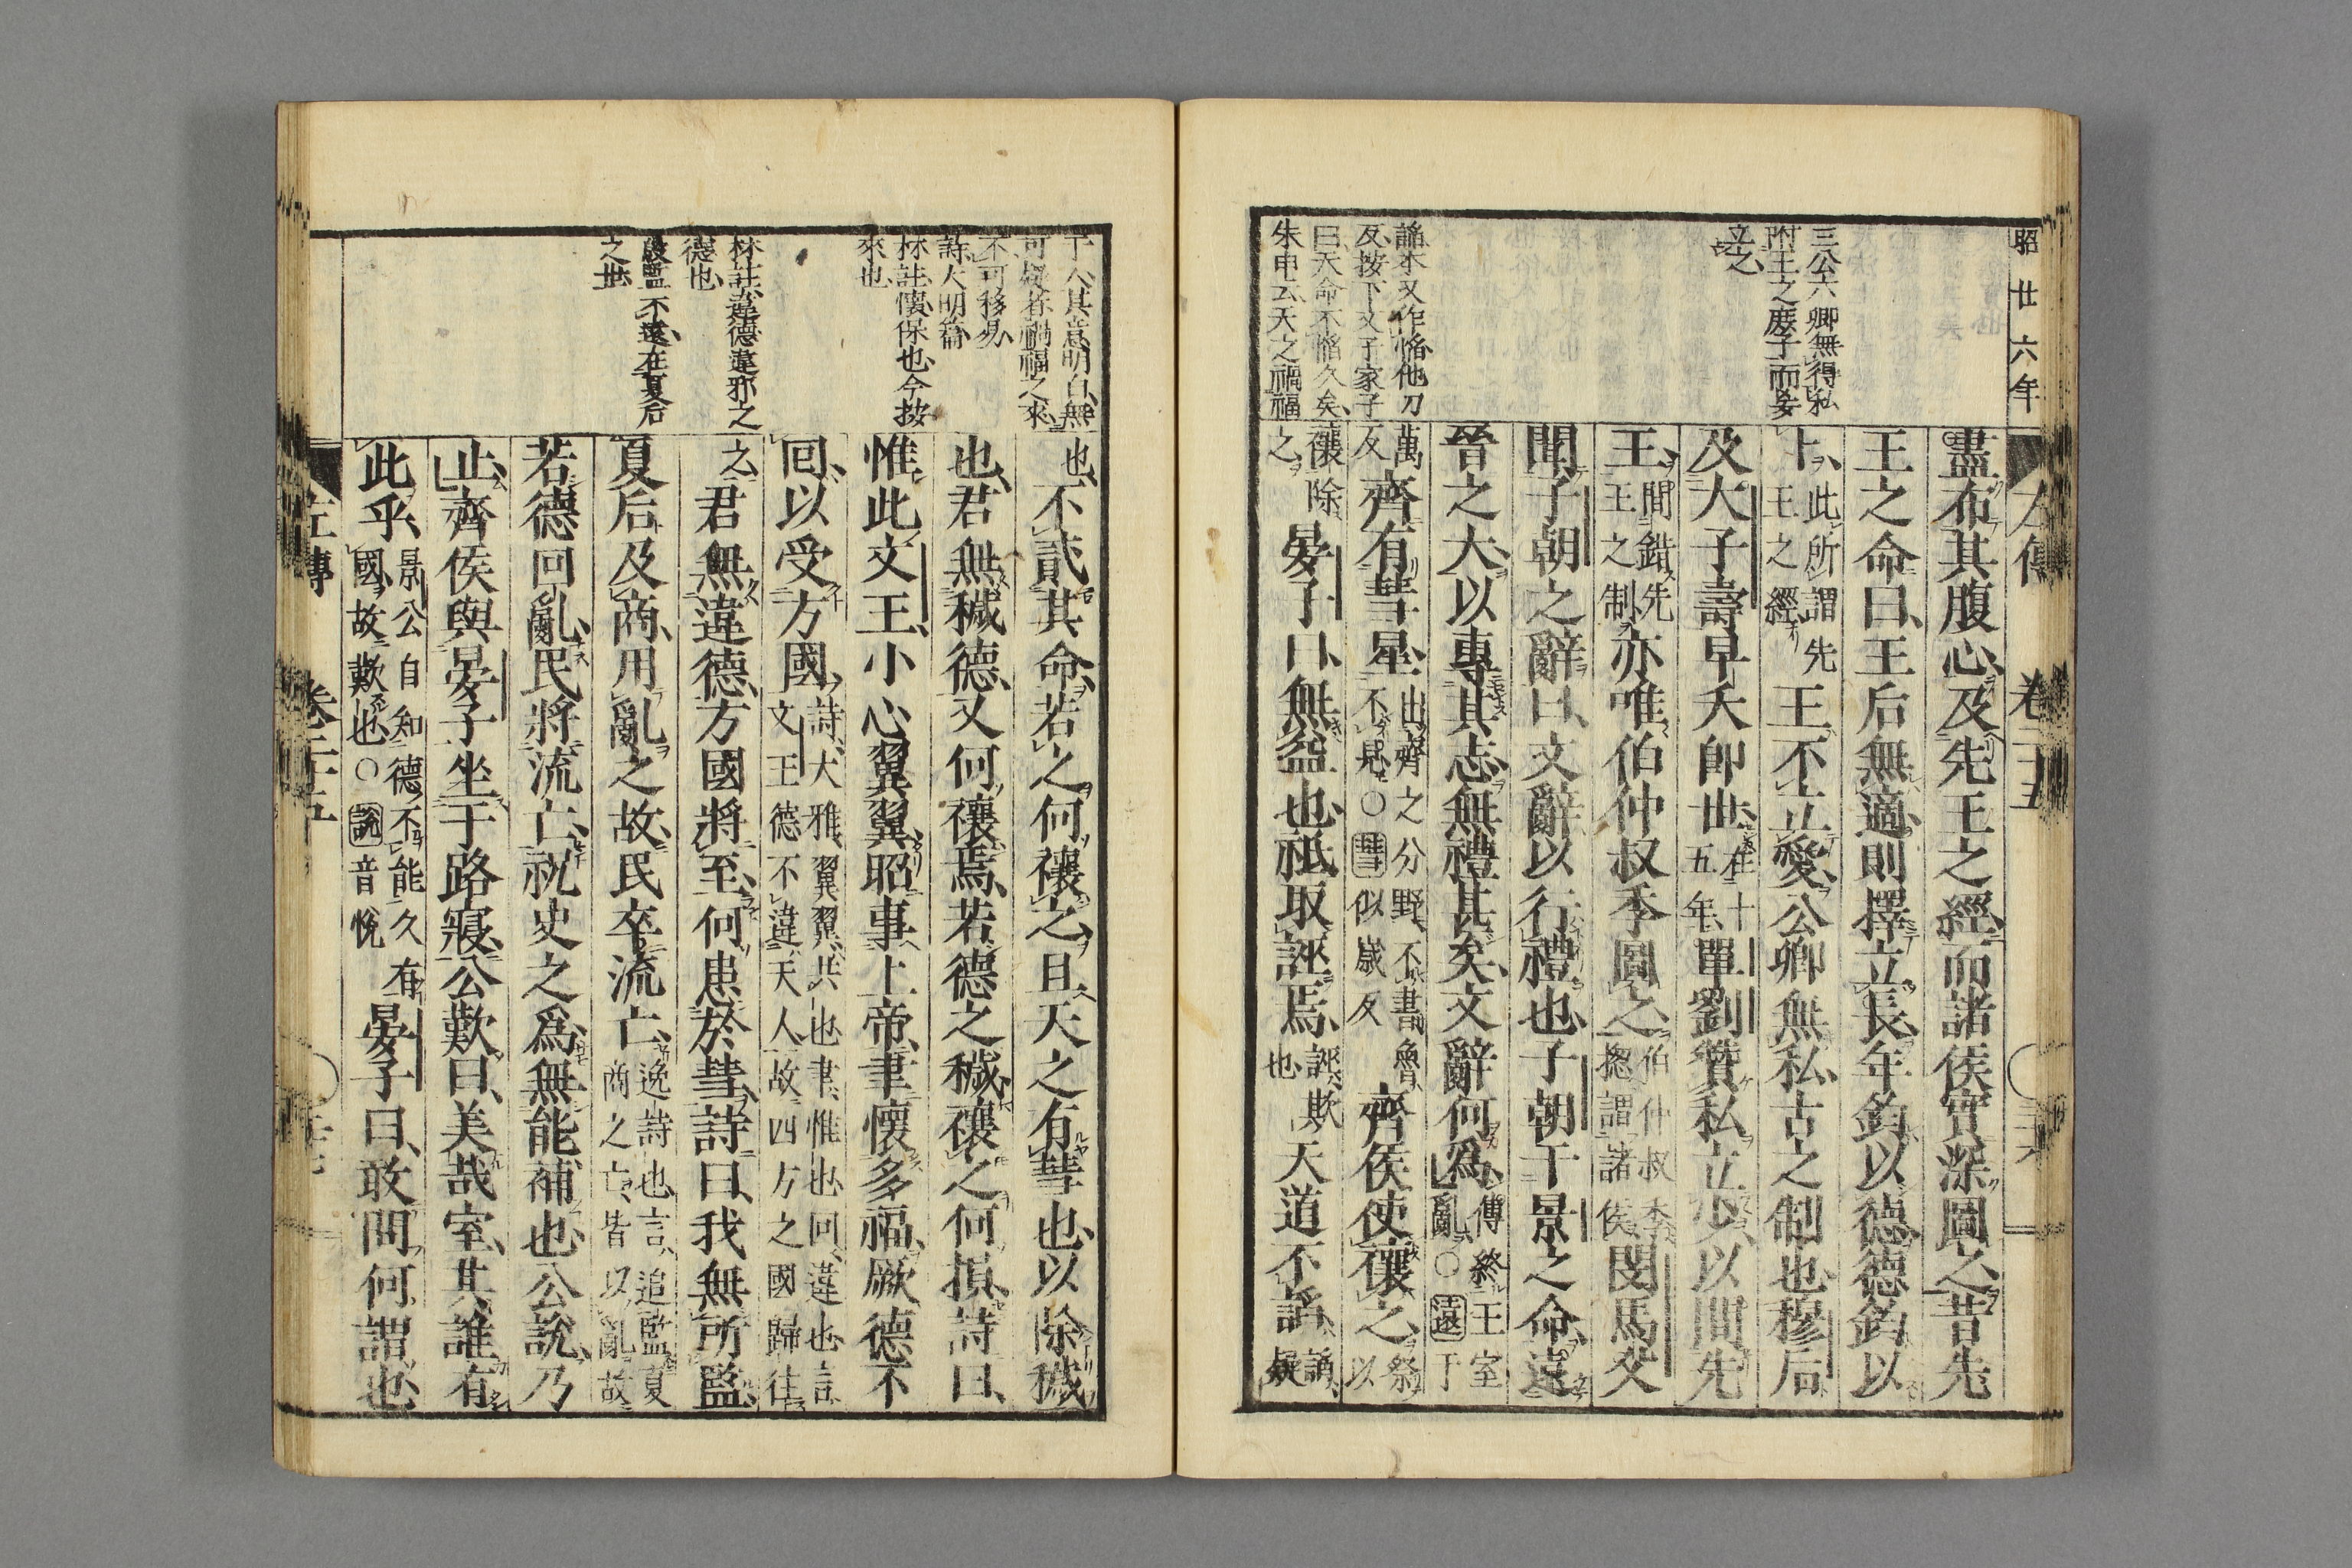 昭廿六年
三公六卿無得私
附王之庶子而妄
立之
謟本又作慆他刀
反按下文子家子
曰天命不慆久矣
朱申云天之禍福
盡布其腹心及先王之經而諸侯實深圖之昔先
王之命曰王后無適則擇立長年鈞以德德鈞以
卜此所謂先王之經王不立愛公卿無私古之制也穆后
及大子壽早夭即世在十五年單劉贊私立少以間先
王間錯先王之制亦唯伯仲叔季圖之伯仲叔季揔謂諸侯閔馬父
聞子朝之辭曰文辭以行禮也子朝干景之命遠
晉之大以專其志無禮甚矣文辭何為傳終王室亂○遠于
萬反齊有彗星出齊之分野不書魯不見○彗似歲反齊侯使禳之祭以
禳除之晏子曰無益也祇取誣焉誣欺也天道不謟謟疑
于人其意明白無
可疑者禍福之來
不可移易
詩大明篇
林註懷保也今按
來也
林註違德違邪之
德也
殷監不遠在夏后
之世
也不貳其命若之何禳之且天之有彗也以除穢
也君無穢德又何禳焉若德之穢禳之何損詩曰
惟此文王小心翼翼昭事上帝聿懷多福厥德不
回以受方國詩大雅翼翼共也聿惟也回違也言文王德不違天人故四方之國歸往
之君無違德方國將至何患於彗詩曰我無所監
夏后及商用亂之故民卒流亡逸詩也言追監夏商之亡皆以亂故
若德回亂民將流亡祝史之為無能補也公說乃
止齊侯與晏子坐于路寢公歎曰美哉室其誰有
此乎景公自知德不能久有國故歎也○說音悅晏子曰敢問何謂也
左傳 卷二十五